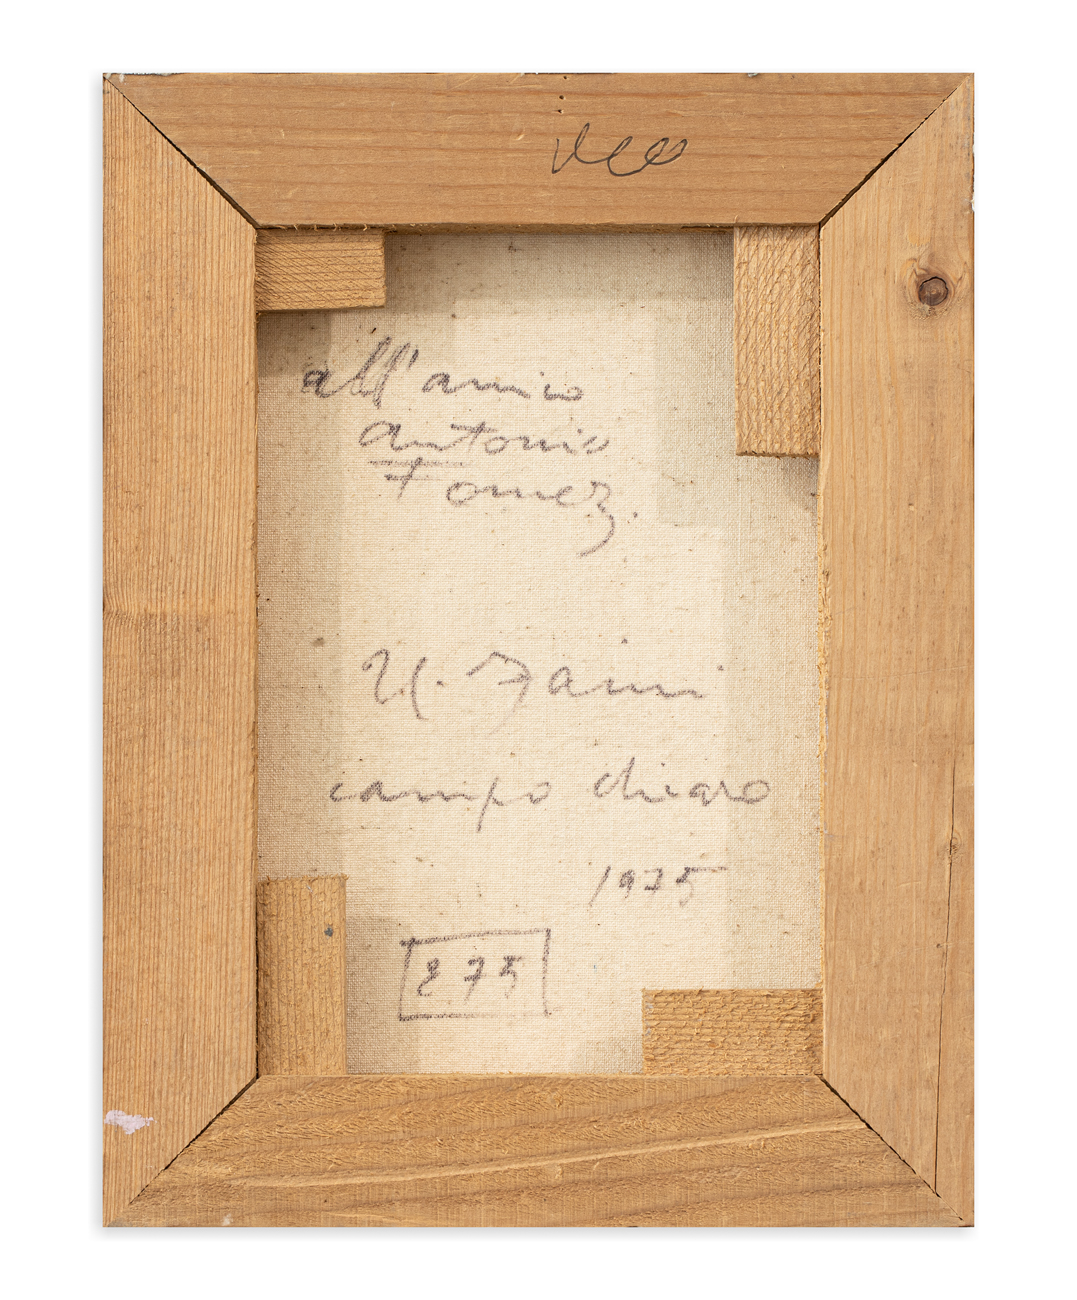 all'amico
Antonio
Tomez.
U. Zaini
campo chiaro
1975
275